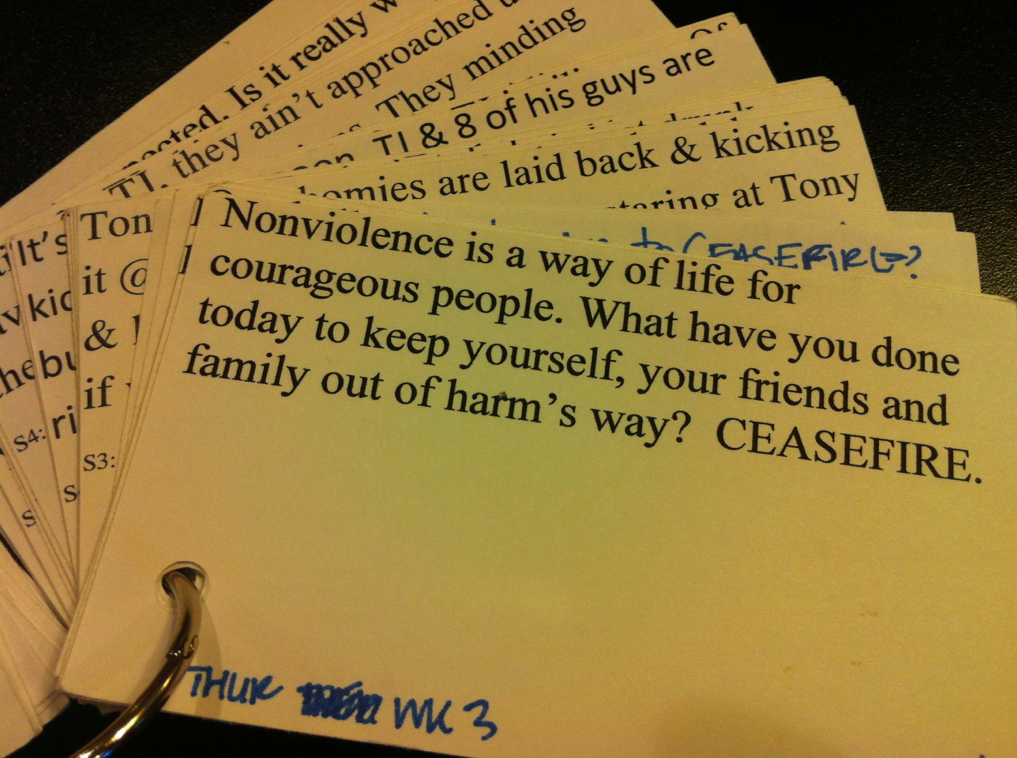 Is it really
TI, they ain't approached
They minding
TI & 8 of his guys are
homies are laid back & kicking
staring at Tony
to CEASEFIRE?
Nonviolence is a way of life for
courageous people. What have you done
today to keep yourself, your friends and
family out of harm's way? CEASEFIRE.
THUR WK 3
Ton
it @
&
if
S3:
It's
kid
S4: